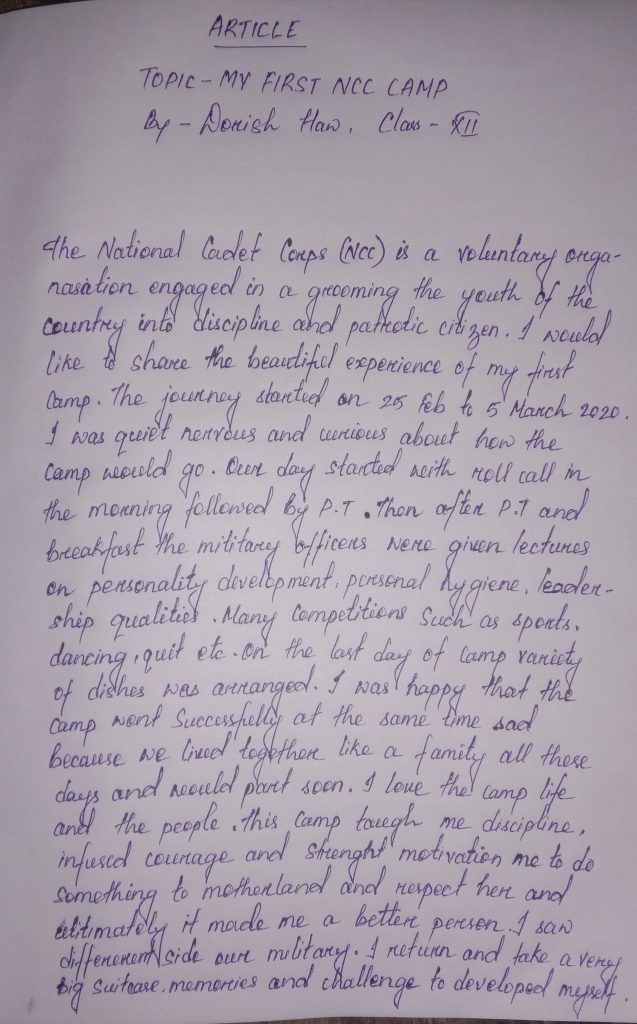 ARTICLE
TOPIC - MY FIRST NCC CAMP
By - Dorish Haw. Class - XII
The National Cadet Corps (NCC) is a voluntary orga-
nasation engaged in a grooming the youth of the
country into discipline and patriotic citizen. I would
like to share the beautiful experience of my first
Camp. The journey started on 25 Feb to 5 March 2020.
I was quiet nervous and curious about how the
Camp would go. Our day started with roll call in
the morning followed by P.T. Then after P.T and
breakfast the mititary officers were given lectures
on personality development, personal hygiene, leader-
ship qualities. Many Competitions Such as sports,
dancing, quit etc. On the last day of camp variety
of dishes was arranged. I was happy that the
camp went Successfully at the same time sad
because we lived together like a family all these
days and would part soon. I love the camp life
and the people. This Camp taugh me discipline,
infused courage and Strenght motivation me to do
Something to motherland and respect her and
ultimately it made me a better person. I saw
different side our military. I return and take a very
big Suitcase, memories and challenge to developed myself.